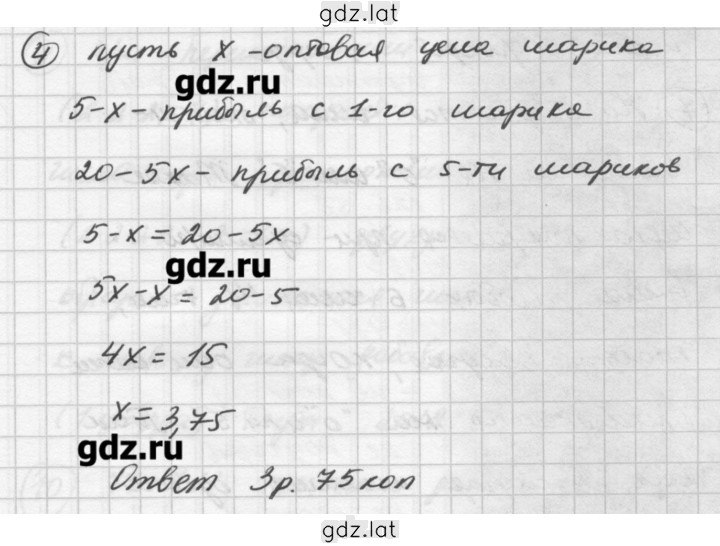 gdz.lat
④ пусть x - оптовая цена шарика
gdz.ru
5-x - прибыль с 1-го шарика
20-5x - прибыль с 5-ти шариков
5-x = 20-5x
gdz.ru
5x-x = 20-5
4x = 15
x = 3,75
gdz.ru
Ответ 3р. 75коп
gdz.lat